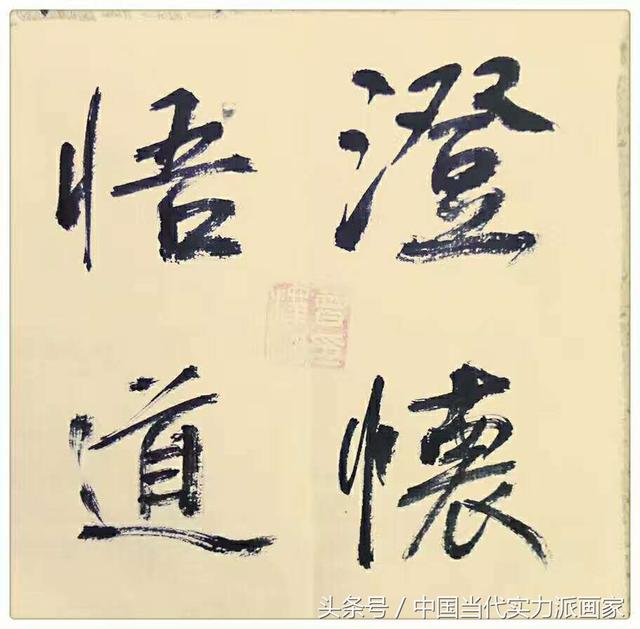 澄懷
悟道
头条号 / 中国当代实力派画家